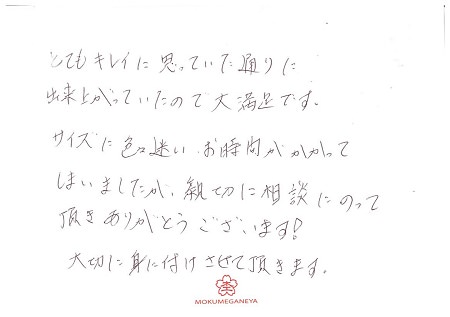 とてもキレイに思っていた通りに
出来上がっていたので大満足です。
サイズに色々迷い お時間がかかって
しまいましたが、親切に相談にのって
頂きありがとうございます!
大切に身に付けさせて頂きます。
MOKUMEGANEYA